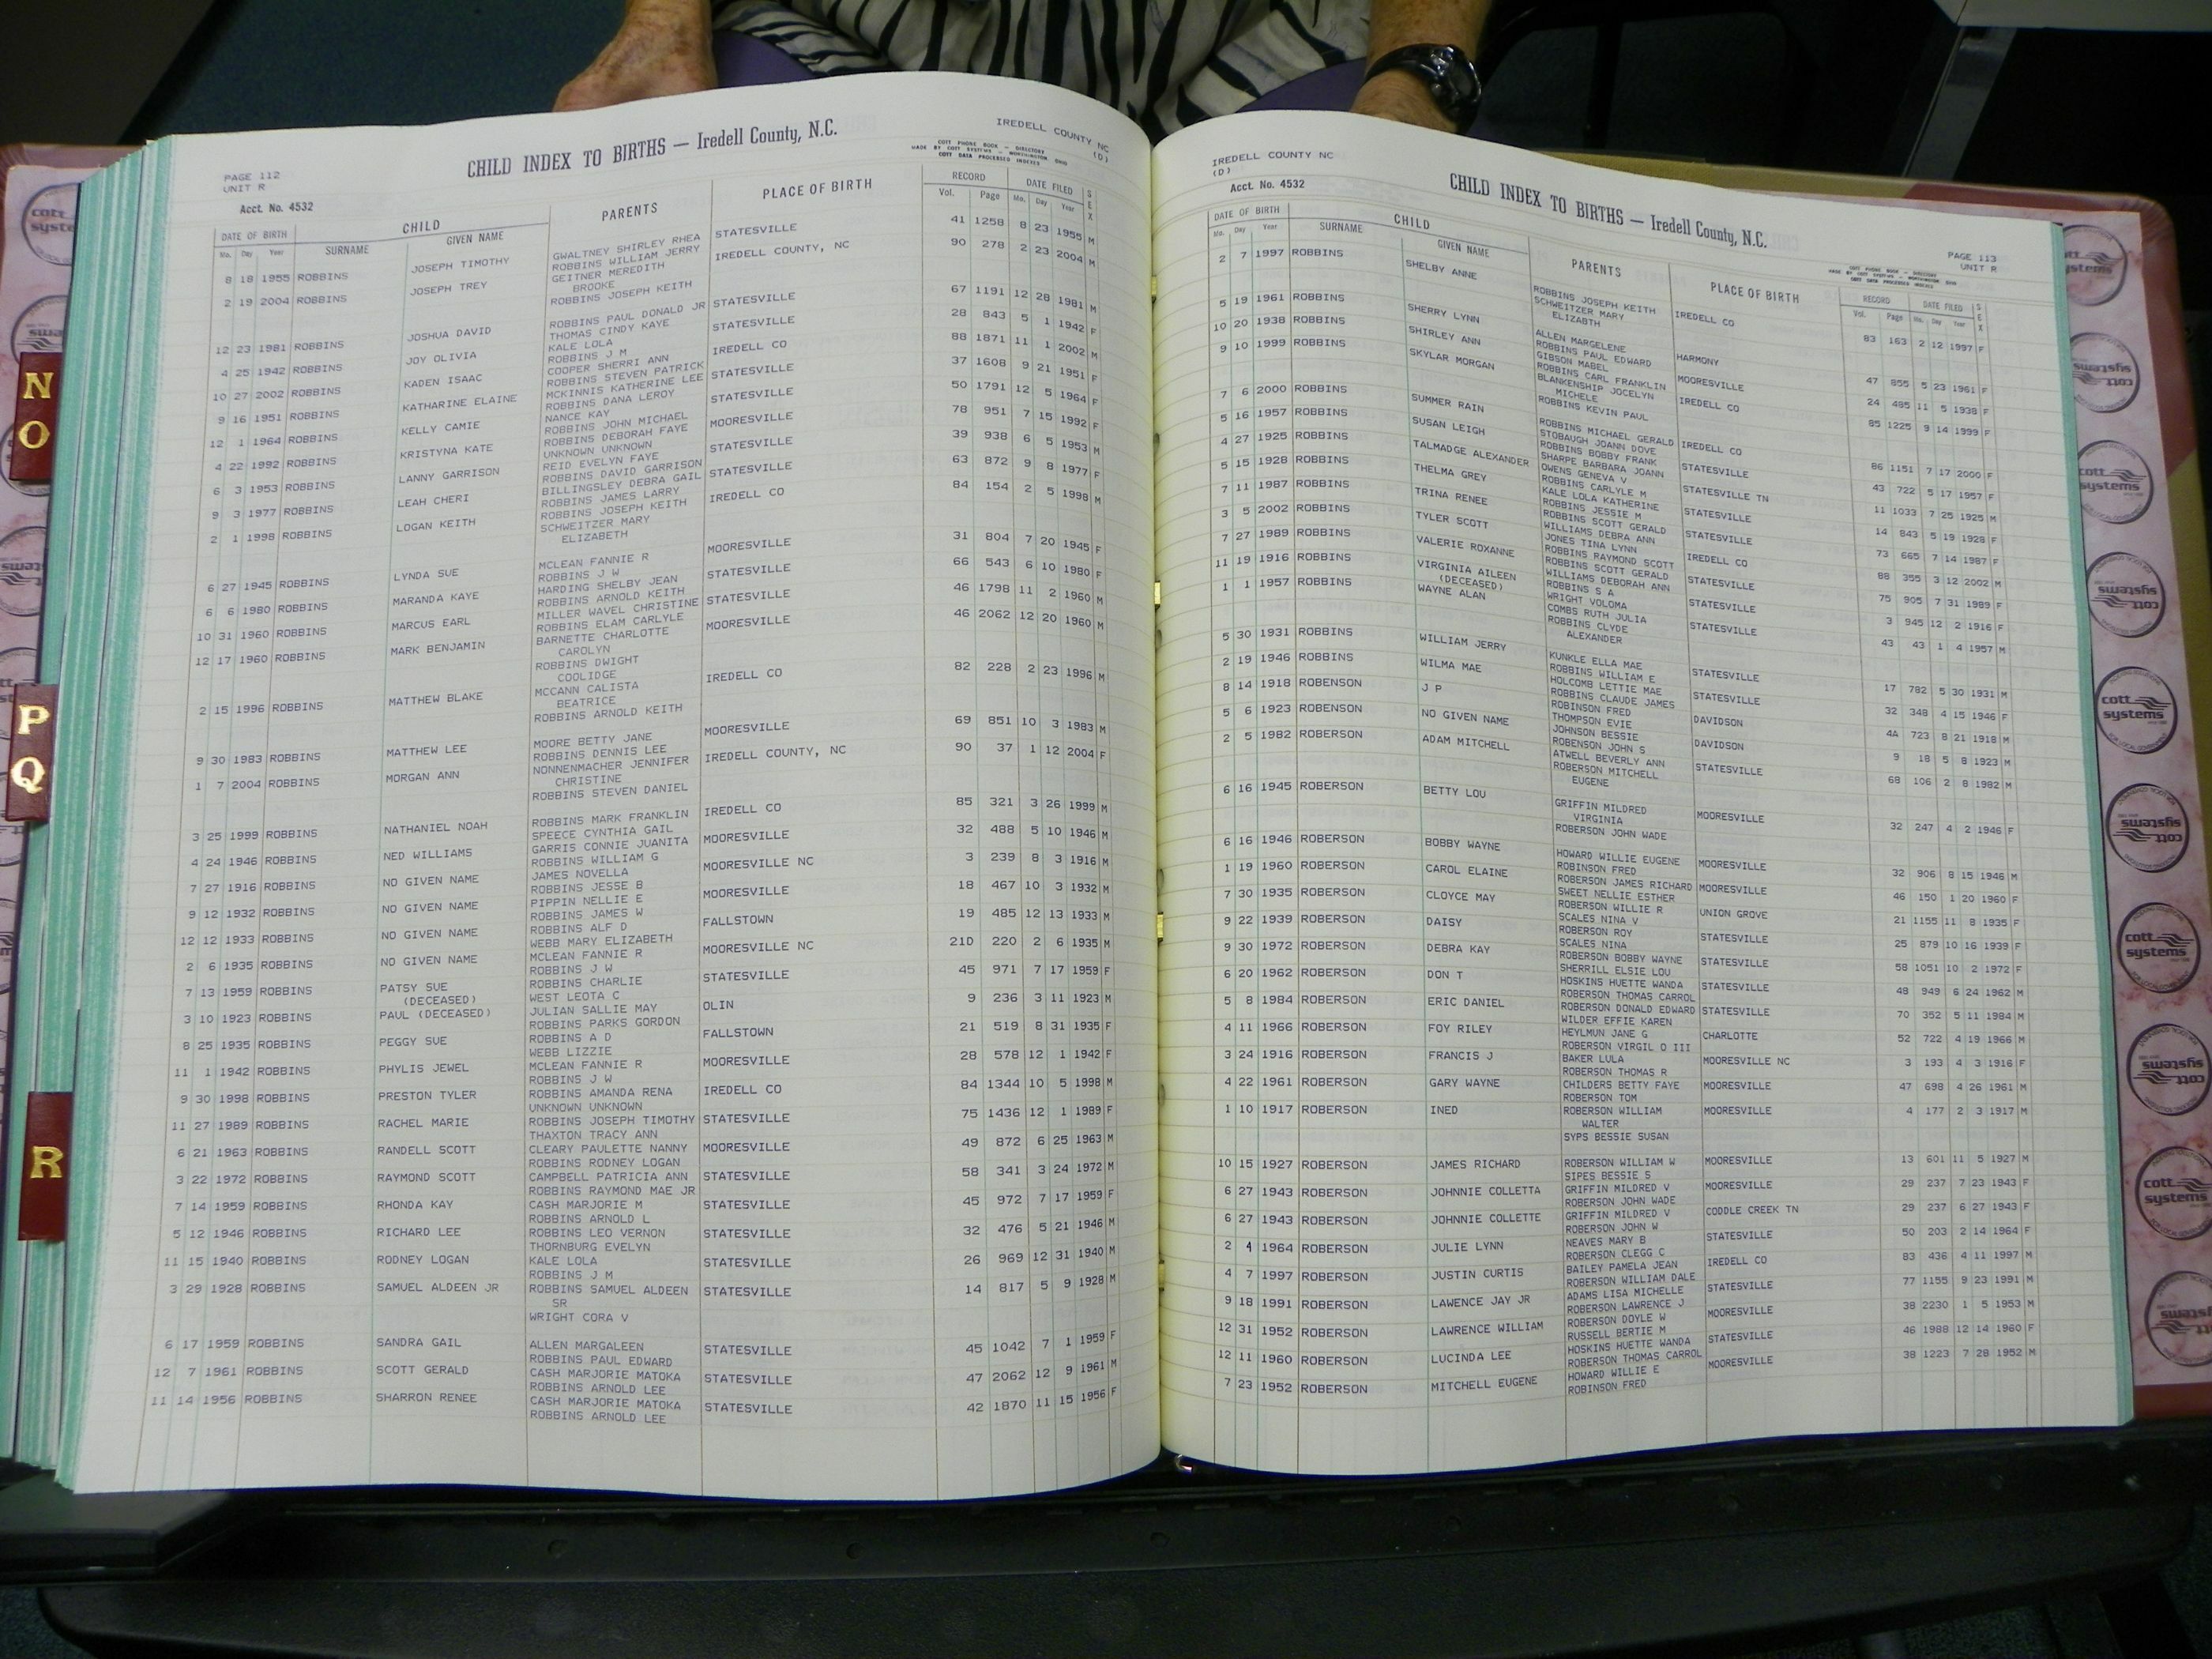 IREDELL COUNTY NC
(D)
COTT PHONE BOOK — DIRECTORY
MADE BY COTT SYSTEMS — WORTHINGTON OHIO
COTT DATA PROCESSED INDEXES
CHILD INDEX TO BIRTHS — Iredell County, N.C.
PAGE 112
UNIT R
Acct. No. 4532
DATE OF BIRTH CHILD PARENTS PLACE OF BIRTH RECORD DATE FILED SEX
Mo. Day Year SURNAME GIVEN NAME Vol. Page Mo. Day Year
8 18 1955 ROBBINS JOSEPH TIMOTHY GWALTNEY SHIRLEY RHEA STATESVILLE 41 1258 8 23 1955 M
ROBBINS WILLIAM JERRY
2 19 2004 ROBBINS JOSEPH TREY GEITNER MEREDITH IREDELL COUNTY, NC 90 278 2 23 2004 M
BROOKE
ROBBINS JOSEPH KEITH
12 23 1981 ROBBINS JOSHUA DAVID ROBBINS PAUL DONALD JR STATESVILLE 67 1191 12 28 1981 M
THOMAS CINDY KAYE
4 25 1942 ROBBINS JOY OLIVIA KALE LOLA STATESVILLE 28 843 5 1 1942 F
ROBBINS J M
10 27 2002 ROBBINS KADEN ISAAC COOPER SHERRI ANN IREDELL CO 88 1871 11 1 2002 M
ROBBINS STEVEN PATRICK
9 16 1951 ROBBINS KATHARINE ELAINE MCKINNIS KATHERINE LEE STATESVILLE 37 1608 9 21 1951 F
ROBBINS DANA LEROY
12 1 1964 ROBBINS KELLY CAMIE NANCE KAY STATESVILLE 50 1791 12 5 1964 F
ROBBINS JOHN MICHAEL
4 22 1992 ROBBINS KRISTYNA KATE ROBBINS DEBORAH FAYE MOORESVILLE 78 951 7 15 1992 F
UNKNOWN UNKNOWN
6 3 1953 ROBBINS LANNY GARRISON REID EVELYN FAYE STATESVILLE 39 938 6 5 1953 M
ROBBINS DAVID GARRISON
9 3 1977 ROBBINS LEAH CHERI BILLINGSLEY DEBRA GAIL STATESVILLE 63 872 9 8 1977 F
ROBBINS JAMES LARRY
2 1 1998 ROBBINS LOGAN KEITH ROBBINS JOSEPH KEITH IREDELL CO 84 154 2 5 1998 M
SCHWEITZER MARY
ELIZABETH
6 27 1945 ROBBINS LYNDA SUE MCLEAN FANNIE R MOORESVILLE 31 804 7 20 1945 F
ROBBINS J W
6 6 1980 ROBBINS MARANDA KAYE HARDING SHELBY JEAN STATESVILLE 66 543 6 10 1980 F
ROBBINS ARNOLD KEITH
10 31 1960 ROBBINS MARCUS EARL MILLER WAVEL CHRISTINE STATESVILLE 46 1798 11 2 1960 M
ROBBINS ELAM CARLYLE
12 17 1960 ROBBINS MARK BENJAMIN BARNETTE CHARLOTTE MOORESVILLE 46 2062 12 20 1960 M
CAROLYN
ROBBINS DWIGHT
COOLIDGE
2 15 1996 ROBBINS MATTHEW BLAKE MCCANN CALISTA IREDELL CO 82 228 2 23 1996 M
BEATRICE
ROBBINS ARNOLD KEITH
9 30 1983 ROBBINS MATTHEW LEE MOORE BETTY JANE MOORESVILLE 69 851 10 3 1983 M
ROBBINS DENNIS LEE
1 7 2004 ROBBINS MORGAN ANN NONNENMACHER JENNIFER IREDELL COUNTY, NC 90 37 1 12 2004 F
CHRISTINE
ROBBINS STEVEN DANIEL
3 25 1999 ROBBINS NATHANIEL NOAH ROBBINS MARK FRANKLIN IREDELL CO 85 321 3 26 1999 M
SPEECE CYNTHIA GAIL
4 24 1946 ROBBINS NED WILLIAMS GARRIS CONNIE JUANITA MOORESVILLE 32 488 5 10 1946 M
ROBBINS WILLIAM G
7 27 1916 ROBBINS NO GIVEN NAME JAMES NOVELLA MOORESVILLE NC 3 239 8 3 1916 M
ROBBINS JESSE B
9 12 1932 ROBBINS NO GIVEN NAME PIPPIN NELLIE E MOORESVILLE 18 467 10 3 1932 M
ROBBINS JAMES W
12 12 1933 ROBBINS NO GIVEN NAME ROBBINS ALF D FALLSTOWN 19 485 12 13 1933 M
WEBB MARY ELIZABETH
2 6 1935 ROBBINS NO GIVEN NAME MCLEAN FANNIE R MOORESVILLE NC 21D 220 2 6 1935 M
ROBBINS J W
7 13 1959 ROBBINS PATSY SUE ROBBINS CHARLIE STATESVILLE 45 971 7 17 1959 F
(DECEASED) WEST LEOTA C
3 10 1923 ROBBINS PAUL (DECEASED) JULIAN SALLIE MAY OLIN 9 236 3 11 1923 M
ROBBINS PARKS GORDON
8 25 1935 ROBBINS PEGGY SUE ROBBINS A D FALLSTOWN 21 519 8 31 1935 F
WEBB LIZZIE
11 1 1942 ROBBINS PHYLIS JEWEL MCLEAN FANNIE R MOORESVILLE 28 578 12 1 1942 F
ROBBINS J W
9 30 1998 ROBBINS PRESTON TYLER ROBBINS AMANDA RENA IREDELL CO 84 1344 10 5 1998 M
UNKNOWN UNKNOWN
11 27 1989 ROBBINS RACHEL MARIE ROBBINS JOSEPH TIMOTHY STATESVILLE 75 1436 12 1 1989 F
THAXTON TRACY ANN
6 21 1963 ROBBINS RANDELL SCOTT CLEARY PAULETTE NANNY MOORESVILLE 49 872 6 25 1963 M
ROBBINS RODNEY LOGAN
3 22 1972 ROBBINS RAYMOND SCOTT CAMPBELL PATRICIA ANN STATESVILLE 58 341 3 24 1972 M
ROBBINS RAYMOND MAE JR
7 14 1959 ROBBINS RHONDA KAY CASH MARJORIE M STATESVILLE 45 972 7 17 1959 F
ROBBINS ARNOLD L
5 12 1946 ROBBINS RICHARD LEE ROBBINS LEO VERNON STATESVILLE 32 476 5 21 1946 M
THORNBURG EVELYN
11 15 1940 ROBBINS RODNEY LOGAN KALE LOLA STATESVILLE 26 969 12 31 1940 M
ROBBINS J M
3 29 1928 ROBBINS SAMUEL ALDEEN JR ROBBINS SAMUEL ALDEEN STATESVILLE 14 817 5 9 1928 M
SR
WRIGHT CORA V
6 17 1959 ROBBINS SANDRA GAIL ALLEN MARGALEEN STATESVILLE 45 1042 7 1 1959 F
ROBBINS PAUL EDWARD
12 7 1961 ROBBINS SCOTT GERALD CASH MARJORIE MATOKA STATESVILLE 47 2062 12 9 1961 M
ROBBINS ARNOLD LEE
11 14 1956 ROBBINS SHARRON RENEE CASH MARJORIE MATOKA STATESVILLE 42 1870 11 15 1956 F
ROBBINS ARNOLD LEE
IREDELL COUNTY NC
(D)
Acct. No. 4532
CHILD INDEX TO BIRTHS — Iredell County, N.C.
PAGE 113
UNIT R
COTT PHONE BOOK — DIRECTORY
MADE BY COTT SYSTEMS — WORTHINGTON OHIO
COTT DATA PROCESSED INDEXES
DATE OF BIRTH CHILD PARENTS PLACE OF BIRTH RECORD DATE FILED SEX
Mo. Day Year SURNAME GIVEN NAME Vol. Page Mo. Day Year
2 7 1997 ROBBINS SHELBY ANNE ROBBINS JOSEPH KEITH IREDELL CO 83 163 2 12 1997 F
SCHWEITZER MARY
ELIZABTH
5 19 1961 ROBBINS SHERRY LYNN ALLEN MARGELENE HARMONY 47 855 5 23 1961 F
ROBBINS PAUL EDWARD
10 20 1938 ROBBINS SHIRLEY ANN GIBSON MABEL MOORESVILLE 24 485 11 5 1938 F
ROBBINS CARL FRANKLIN
9 10 1999 ROBBINS SKYLAR MORGAN BLANKENSHIP JOCELYN IREDELL CO 85 1225 9 14 1999 F
MICHELE
ROBBINS KEVIN PAUL
7 6 2000 ROBBINS SUMMER RAIN ROBBINS MICHAEL GERALD IREDELL CO 86 1151 7 17 2000 F
STOBAUGH JOANN DOVE
5 16 1957 ROBBINS SUSAN LEIGH ROBBINS BOBBY FRANK STATESVILLE 43 722 5 17 1957 F
SHARPE BARBARA JOANN
4 27 1925 ROBBINS TALMADGE ALEXANDER OWENS GENEVA V STATESVILLE TN 11 1033 7 25 1925 M
ROBBINS CARLYLE M
5 15 1928 ROBBINS THELMA GREY KALE LOLA KATHERINE STATESVILLE 14 843 5 19 1928 F
ROBBINS JESSIE M
7 11 1987 ROBBINS TRINA RENEE ROBBINS SCOTT GERALD STATESVILLE 73 665 7 14 1987 F
WILLIAMS DEBRA ANN
3 5 2002 ROBBINS TYLER SCOTT JONES TINA LYNN IREDELL CO 88 355 3 12 2002 M
ROBBINS RAYMOND SCOTT
7 27 1989 ROBBINS VALERIE ROXANNE ROBBINS SCOTT GERALD STATESVILLE 75 905 7 31 1989 F
WILLIAMS DEBORAH ANN
11 19 1916 ROBBINS VIRGINIA AILEEN ROBBINS S A STATESVILLE 3 945 12 2 1916 F
(DECEASED) WRIGHT VOLOMA
1 1 1957 ROBBINS WAYNE ALAN COMBS RUTH JULIA STATESVILLE 43 43 1 4 1957 M
ROBBINS CLYDE
ALEXANDER
5 30 1931 ROBBINS WILLIAM JERRY KUNKLE ELLA MAE STATESVILLE 17 782 5 30 1931 M
ROBBINS WILLIAM E
2 19 1946 ROBBINS WILMA MAE HOLCOMB LETTIE MAE STATESVILLE 32 348 4 15 1946 F
ROBBINS CLAUDE JAMES
8 14 1918 ROBENSON J P ROBINSON FRED DAVIDSON 4A 723 8 21 1918 M
THOMPSON EVIE
5 6 1923 ROBENSON NO GIVEN NAME JOHNSON BESSIE DAVIDSON 9 18 5 8 1923 M
ROBENSON JOHN S
2 5 1982 ROBERSON ADAM MITCHELL ATWELL BEVERLY ANN STATESVILLE 68 106 2 8 1982 M
ROBERSON MITCHELL
EUGENE
6 16 1945 ROBERSON BETTY LOU GRIFFIN MILDRED MOORESVILLE 32 247 4 2 1946 F
VIRGINIA
ROBERSON JOHN WADE
6 16 1946 ROBERSON BOBBY WAYNE HOWARD WILLIE EUGENE MOORESVILLE 32 906 8 15 1946 M
ROBINSON FRED
1 19 1960 ROBERSON CAROL ELAINE ROBERSON JAMES RICHARD MOORESVILLE 46 150 1 20 1960 F
SWEET NELLIE ESTHER
7 30 1935 ROBERSON CLOYCE MAY ROBERSON WILLIE R UNION GROVE 21 1155 11 8 1935 F
SCALES NINA V
9 22 1939 ROBERSON DAISY ROBERSON ROY STATESVILLE 25 879 10 16 1939 F
SCALES NINA
9 30 1972 ROBERSON DEBRA KAY ROBERSON BOBBY WAYNE STATESVILLE 58 1051 10 2 1972 F
SHERRILL ELSIE LOU
6 20 1962 ROBERSON DON T HOSKINS HUETTE WANDA STATESVILLE 48 949 6 24 1962 M
ROBERSON THOMAS CARROL
5 8 1984 ROBERSON ERIC DANIEL ROBERSON DONALD EDWARD STATESVILLE 70 352 5 11 1984 M
WILDER EFFIE KAREN
4 11 1966 ROBERSON FOY RILEY HEYLMUN JANE G CHARLOTTE 52 722 4 19 1966 M
ROBERSON VIRGIL O III
3 24 1916 ROBERSON FRANCIS J BAKER LULA MOORESVILLE NC 3 193 4 3 1916 F
ROBERSON THOMAS R
4 22 1961 ROBERSON GARY WAYNE CHILDERS BETTY FAYE MOORESVILLE 47 698 4 26 1961 M
ROBERSON TOM
1 10 1917 ROBERSON INED ROBERSON WILLIAM MOORESVILLE 4 177 2 3 1917 M
WALTER
SYPS BESSIE SUSAN
10 15 1927 ROBERSON JAMES RICHARD ROBERSON WILLIAM W MOORESVILLE 13 601 11 5 1927 M
SIPES BESSIE S
6 27 1943 ROBERSON JOHNNIE COLLETTA GRIFFIN MILDRED V MOORESVILLE 29 237 7 23 1943 F
ROBERSON JOHN WADE
6 27 1943 ROBERSON JOHNNIE COLLETTE GRIFFIN MILDRED V CODDLE CREEK TN 29 237 6 27 1943 F
ROBERSON JOHN W
2 4 1964 ROBERSON JULIE LYNN NEAVES MARY B STATESVILLE 50 203 2 14 1964 F
ROBERSON CLEGG C
4 7 1997 ROBERSON JUSTIN CURTIS BAILEY PAMELA JEAN IREDELL CO 83 436 4 11 1997 M
ROBERSON WILLIAM DALE
9 18 1991 ROBERSON LAWENCE JAY JR ADAMS LISA MICHELLE STATESVILLE 77 1155 9 23 1991 M
ROBERSON LAWRENCE J
12 31 1952 ROBERSON LAWRENCE WILLIAM ROBERSON DOYLE W MOORESVILLE 38 2230 1 5 1953 M
RUSSELL BERTIE M
12 11 1960 ROBERSON LUCINDA LEE HOSKINS HUETTE WANDA STATESVILLE 46 1988 12 14 1960 F
ROBERSON THOMAS CARROL
7 23 1952 ROBERSON MITCHELL EUGENE HOWARD WILLIE E MOORESVILLE 38 1223 7 28 1952 M
ROBINSON FRED
N
O
P
Q
R
cott
systems
cott
systems
cott
systems
cott
systems
cott
systems
cott
systems
cott
systems